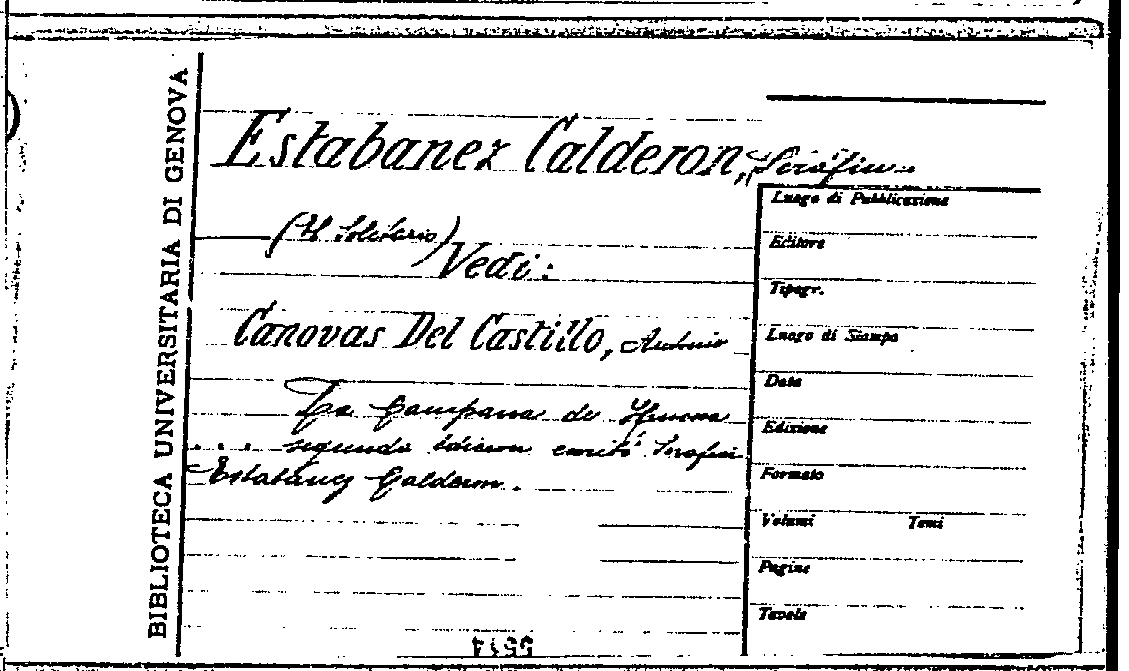 BIBLIOTECA UNIVERSITARIA DI GENOVA
Estabanez Calderon, Serafin
(Il Solitario)
Vedi:
Canovas Del Castillo, Antonio
La Campana de Huesca
... segunda edicion escritó Serafin
Estabanez Calderon.
Luogo di Pubblicazione
Editore
Tipogr.
Luogo di Stampa
Data
Edizione
Formato
Volumi Tomi
Pagine
Tavole